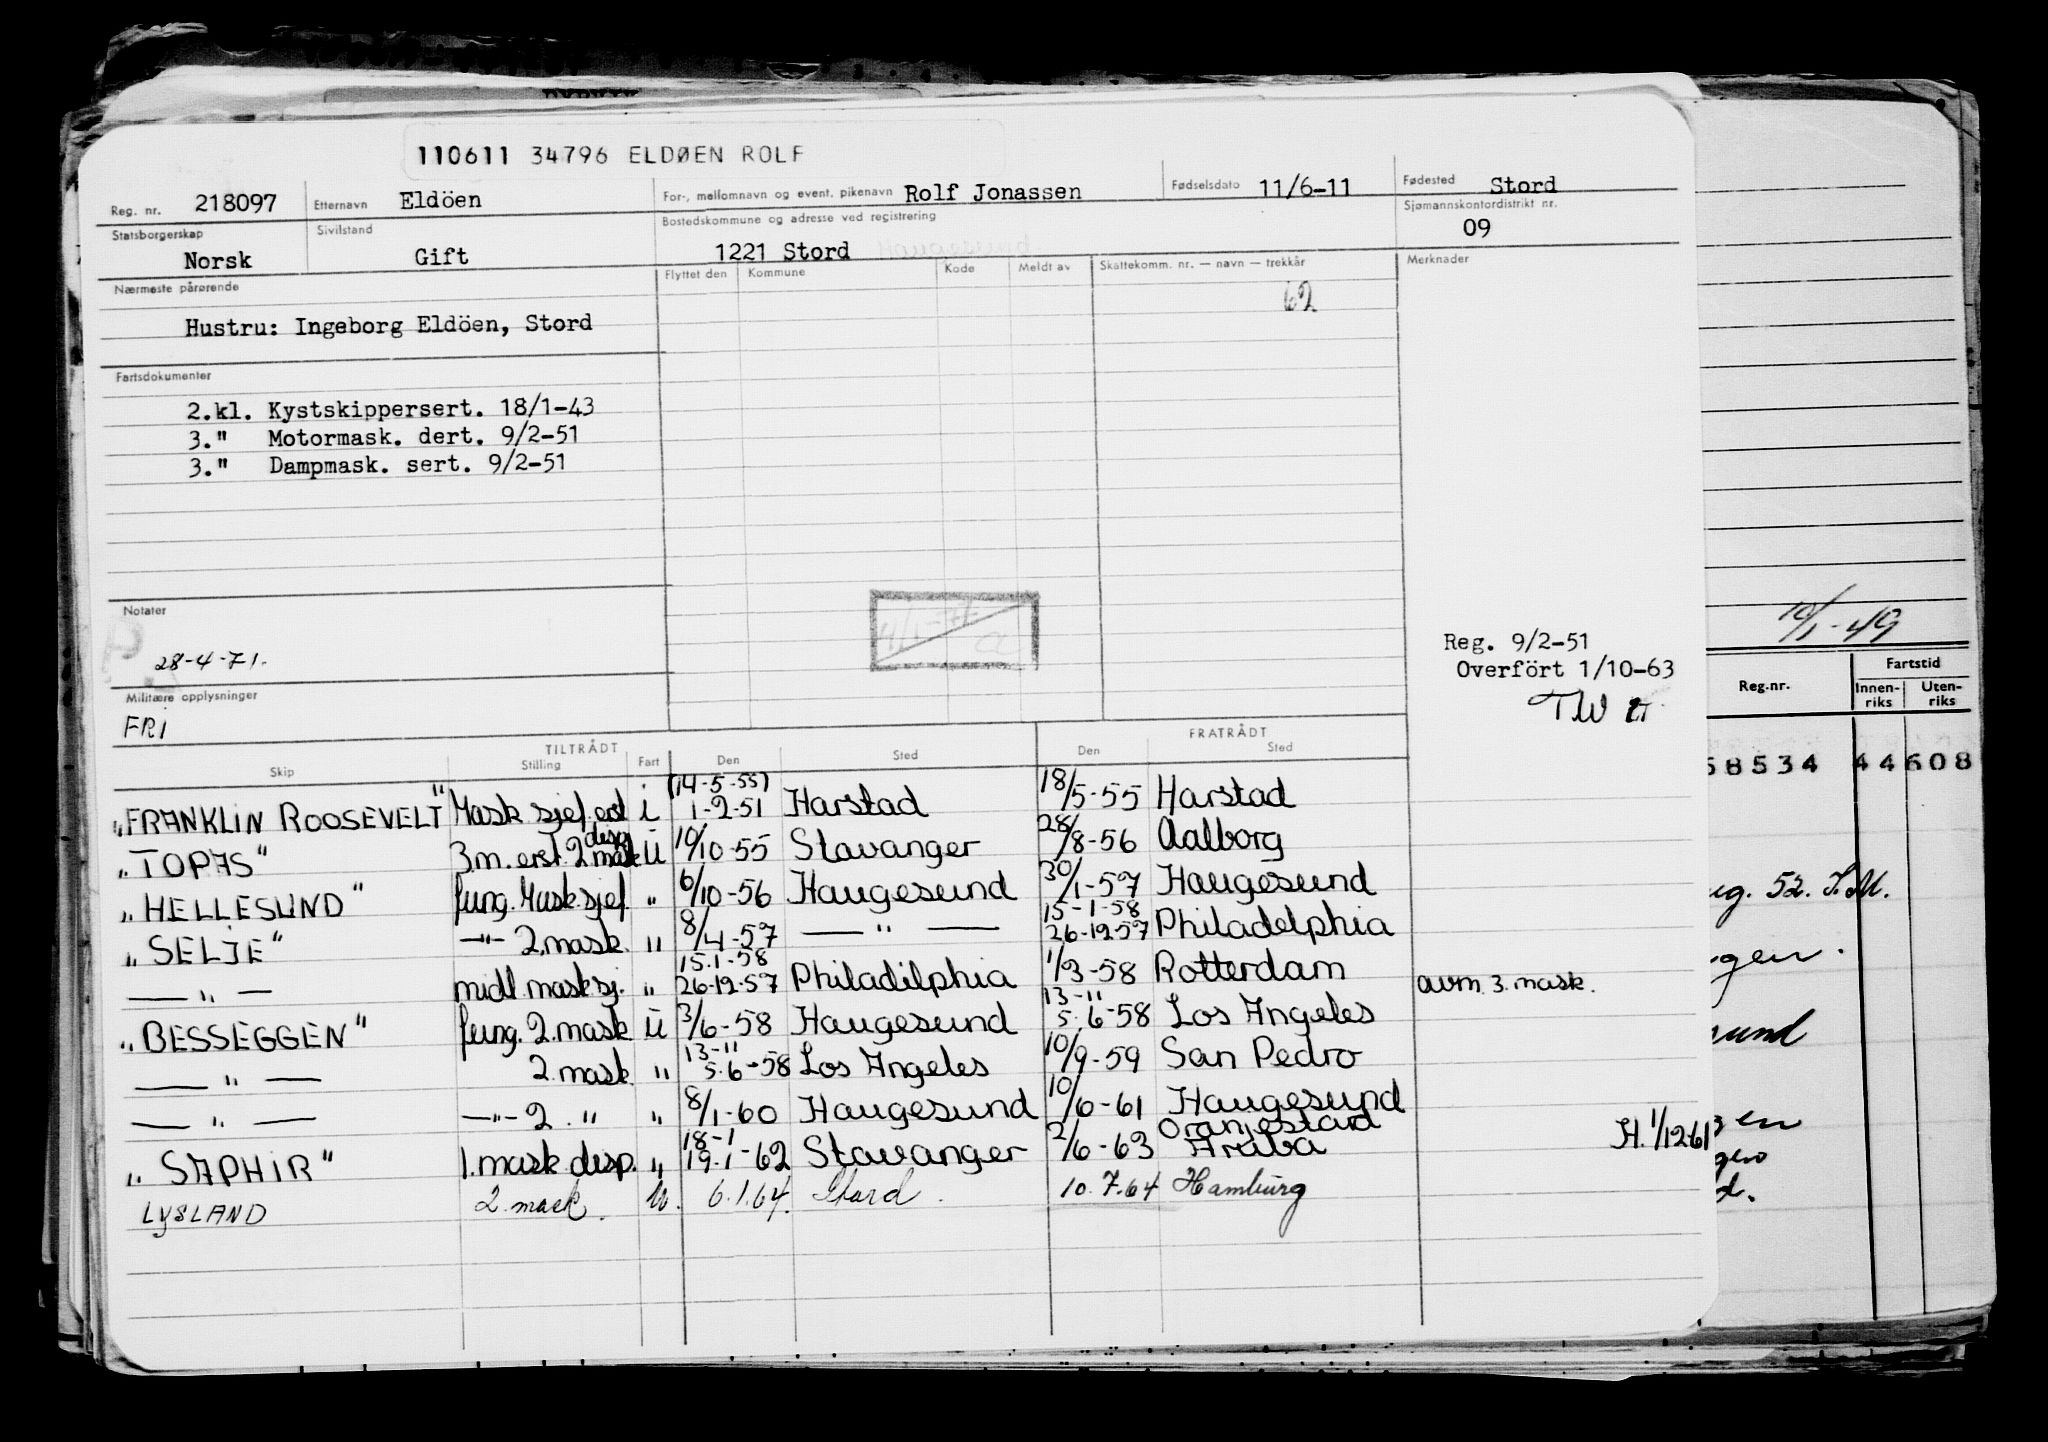 110611 34796 ELDØEN ROLF
Reg. nr. 218097 Etternavn Eldöen For-, mellomnavn og event. pikenavn Rolf Jonassen Fødselsdato 11/6-11 Fødested Stord
Statsborgerskap Sivilstand Bostedskommune og adresse ved registrering Sjømannskontordistrikt nr.
Norsk Gift 1221 Stord 09
Nærmeste pårørende Flyttet den Kommune Kode Meldt av Skattekomm. nr. — navn — trekkår Merknader
62
Hustru: Ingeborg Eldöen, Stord
Fartsdokumenter
2.kl. Kystskippersert. 18/1-43
3." Motormask. dert. 9/2-51
3." Dampmask. sert. 9/2-51
Notater
4/1-77
28-4-71.
Reg. 9/2-51
Overfört 1/10-63
TW
Militære opplysninger
FRI
TILTRÅDT FRATRÅDT
Skip Stilling Fart Den Sted Den Sted
(14-5-55)
"FRANKLIN ROOSEVELT" Mask sjef erst i 1-2-51 Harstad 18/5-55 Harstad
disp
"TOPAS" 3m. erst 2 mask U 10/10-55 Stavanger 28/8-56 Aalborg
"HELLESUND" fung. Mask.sjef " 6/10-56 Haugesund 30/1-57 Haugesund
15-1-58
"SELJE" —"— 2.mask. " 8/4-57 — " — 26-12-57 Philadelphia
15.1-58
— " — midl. mask sj. " 26-12-57 Philadilphia 1/3-58 Rotterdam avm. 3. mask.
13-11
"BESSEGGEN" fung. 2.mask U 3/6-58 Haugesund 5.6-58 Los Angeles
13-11
— " — 2.mask. " 5.6-58 Los Angeles 10/9-59 San Pedro
— " — —"— 2. " " 8/1-60 Haugesund 10/6-61 Haugesund
18-1 Oranjestad
"SAPHIR" 1.mask disp. " 19.1-62 Stavanger 2/6-63 Aruba H. 1/12-61
LYSLAND 2. mask. U. 6.1.64. Stord. 10.7.64 Hamburg
10/1-49
Reg.nr. Fartstid
Innen-riks Uten-riks
58534 44 608
ug. 52. S.M.